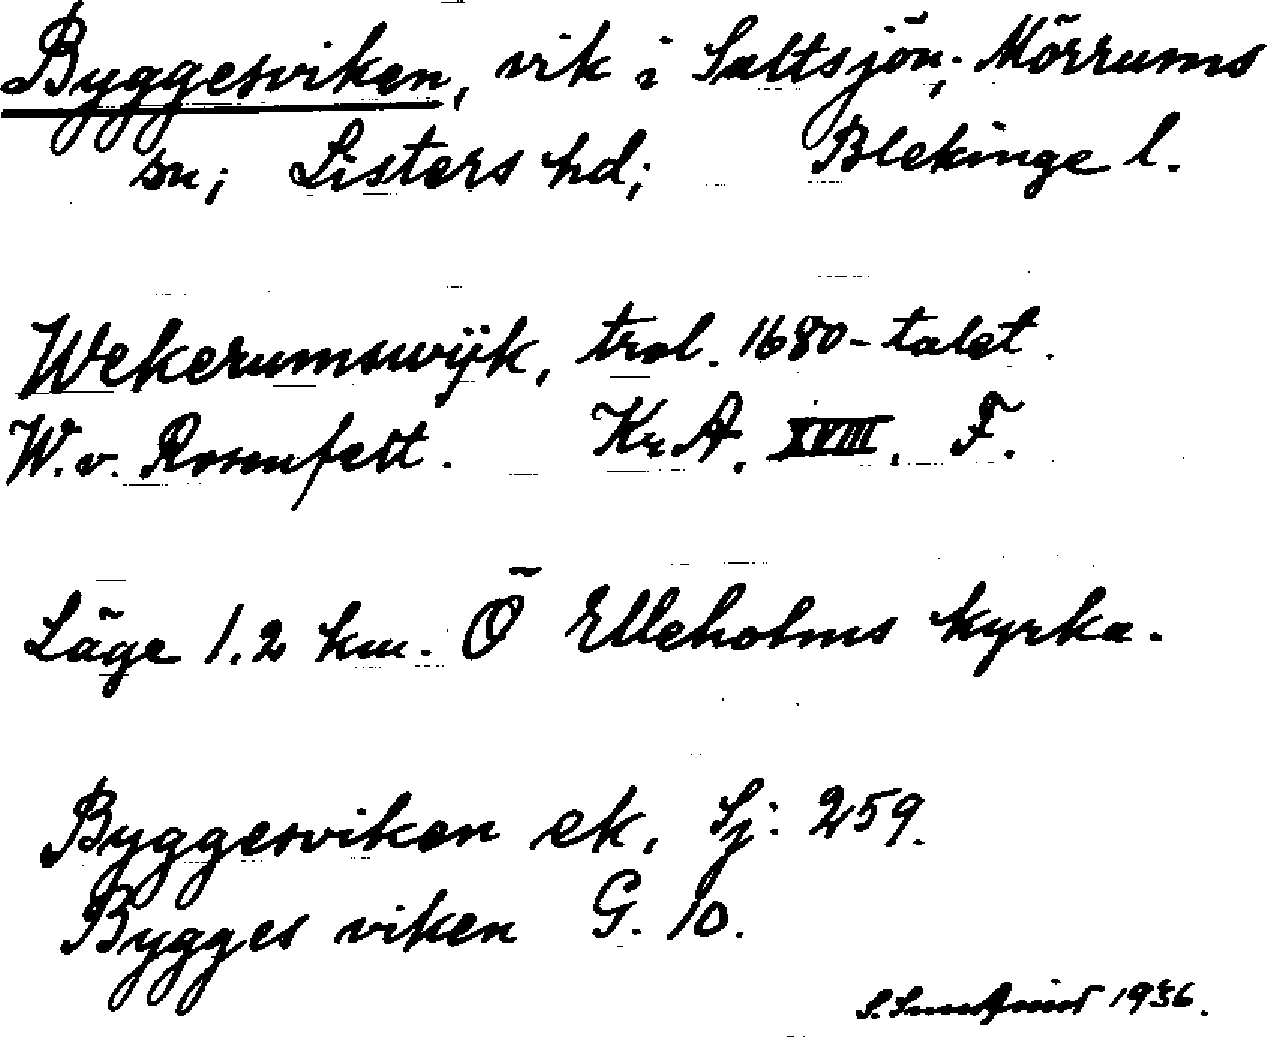 Byggesviken, vik i Saltsjön; Mörrums
sn; Listers hd; Blekinge l.
Wekerumswijk, trol. 1680-talet.
W. v. Rosenfelt. Kr. A. XVIII. F.
Läge 1.2 km. Ö Elleholms kyrka.
Byggesviken ek. Sj: 259.
Bygges viken G. 10.
S. 1936.